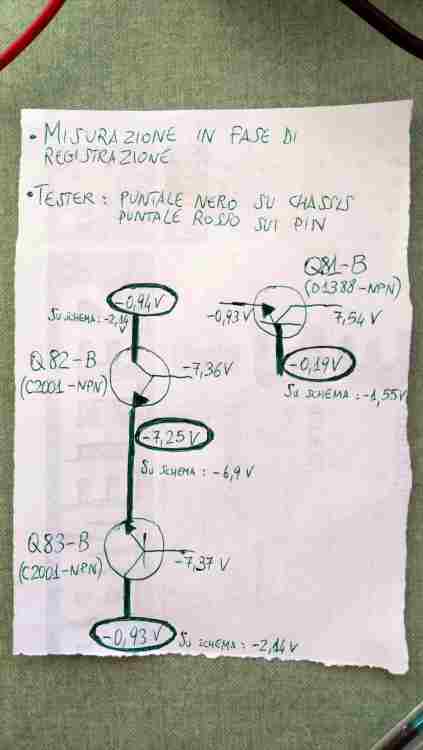 • MISURAZIONE IN FASE DI
REGISTRAZIONE
• TESTER: PUNTALE NERO SU CHASSIS
PUNTALE ROSSO SUI PIN
Q81-B
(D1388-NPN)
-0,94V
SU SCHEMA: -2,14
V
-0,93V
7,54V
Q82-B
(C2001-NPN)
-7,36V
-0,19V
SU SCHEMA: -1,55V
-7,25V
SU SCHEMA: -6,9V
Q83-B
(C2001-NPN)
-7,37V
-0,93V
SU SCHEMA: -2,14V